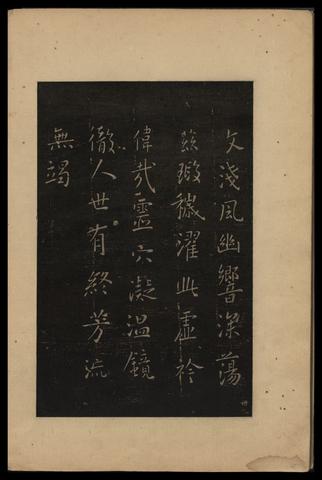 文淺風幽響深蕩
茲瑕穢濯此虛衿
偉哉靈穴凝溫鏡
徹人世有終芳流
無竭